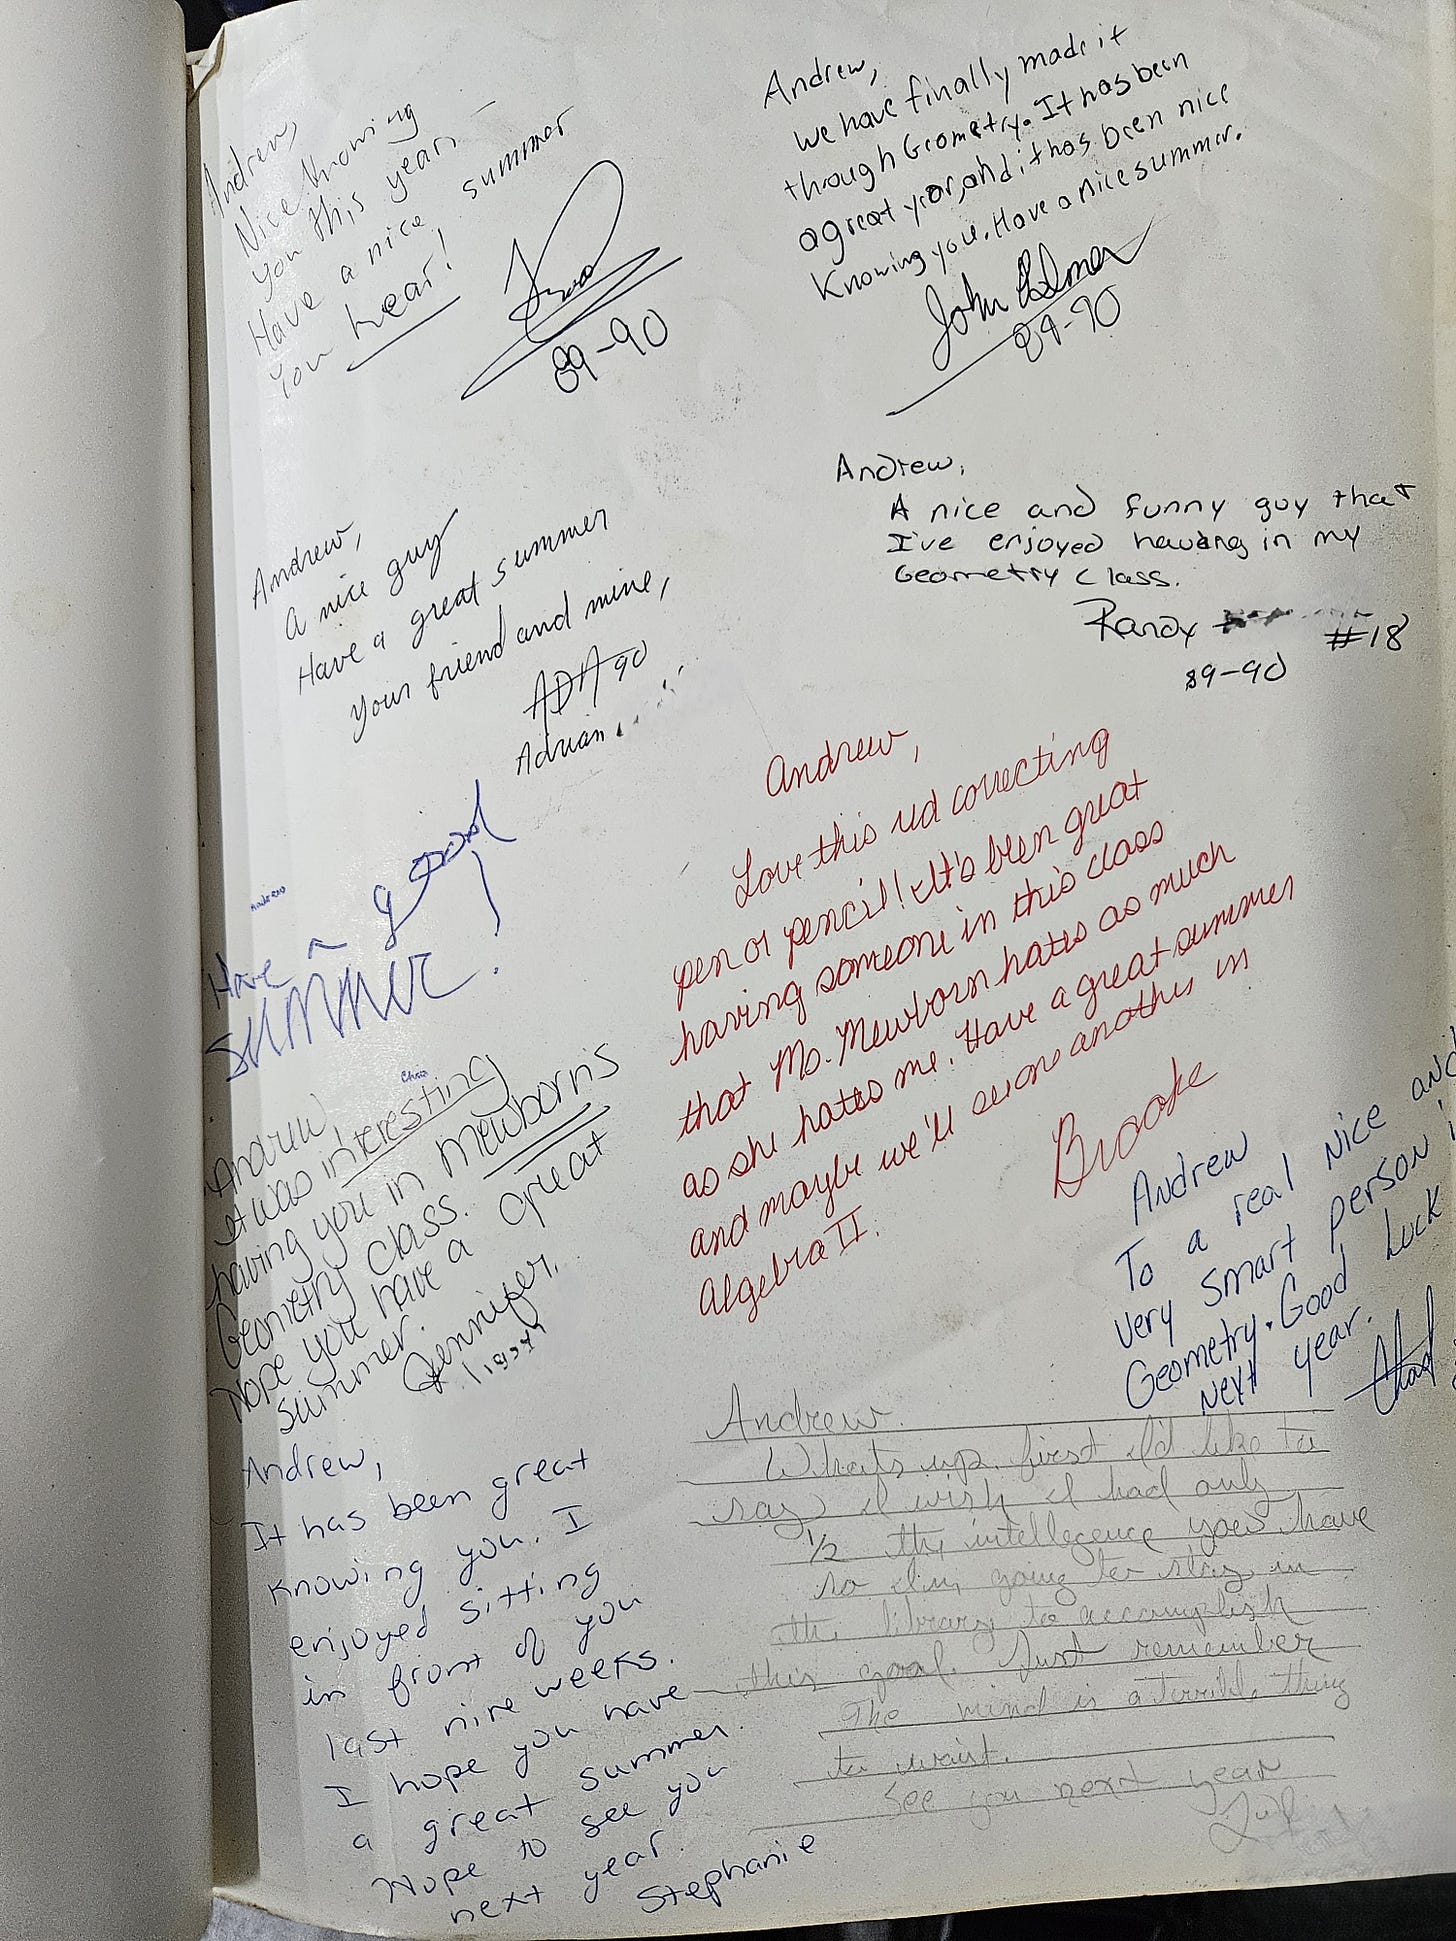 Andrew,
Nice knowing
you this year.
Have a nice summer
you hear!
89-90
Andrew,
we have finally made it
through Geometry. It has been
a great year, and it has been nice
Knowing you. Have a nice summer.
John
89-90
Andrew,
A nice and funny guy that
I've enjoyed having in my
Geometry Class.
Randy #18
89-90
Andrew,
A nice guy
Have a great summer
Your friend and mine,
ADA 90
Adrian
Andrew
Have a good
summer!
Chris
Andrew,
Love this red correcting
pen or pencil! It's been great
having someone in this class
that Ms. Mewborn hates as much
as she hates me. Have a great summer
and maybe we'll see one another in
Algebra II.
Brooke
Andrew,
It was interesting
having you in Mewborn's
Geometry class.
Hope you have a great
summer.
Jennifer
Andrew
To a real nice and
very smart person in
Geometry. Good Luck
Next year.
Chad
Andrew,
It has been great
knowing you. I
enjoyed sitting
in front of you
last nine weeks.
I hope you have
a great summer.
Hope to see you
next year.
Stephanie
Andrew.
What's up, first I'd like to
say I wish I had only
1/2 the intellegence you have
so I'm going to stay in
the library to accomplish
this goal. Just remember
The mind is a terrible thing
to waist.
See you next year